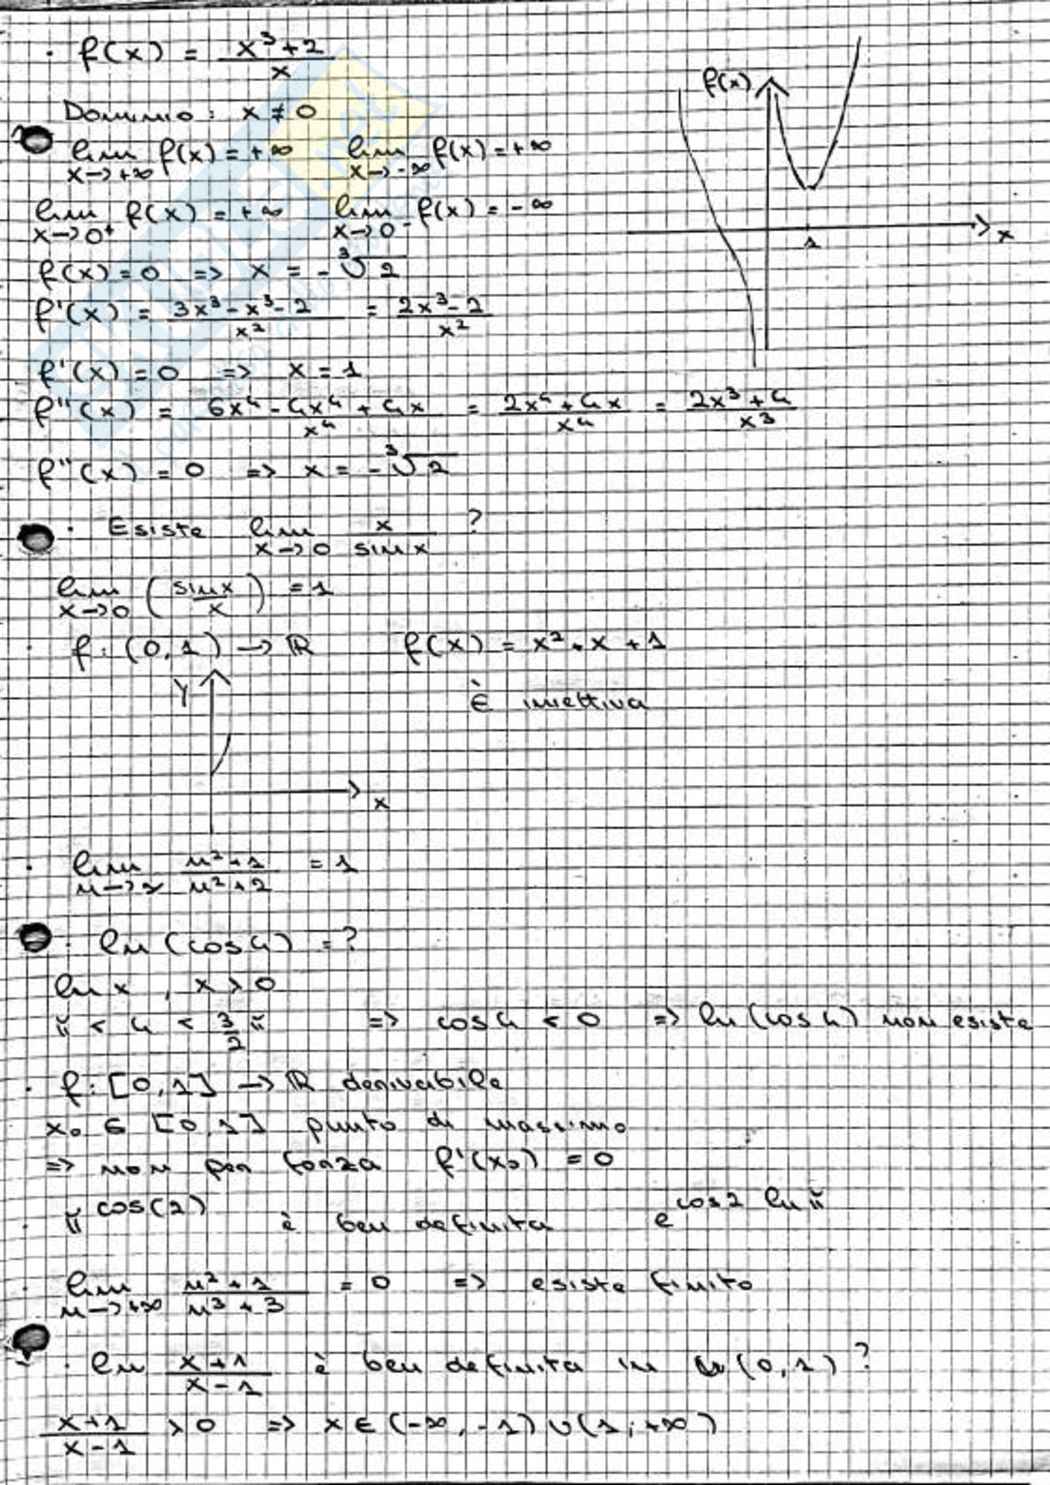 · f(x) = (x³+2)/x
Dominio: x ≠ 0
lim x→+∞ f(x) = +∞   lim x→-∞ f(x) = +∞
lim x→0⁺ f(x) = +∞   lim x→0⁻ f(x) = -∞
f(x) = 0 => x = -∛2
f'(x) = (3x³-x³-2)/x² = (2x³-2)/x²
f'(x) = 0 => x = 1
f''(x) = (6x⁴-4x⁴+4x)/x⁴ = (2x⁴+4x)/x⁴ = (2x³+4)/x³
f''(x) = 0 => x = -∛2
f(x)
1
x
· Esiste lim x→0 x/sinx ?
lim x→0 (sinx/x) = 1
· f: (0,1) → ℝ   f(x) = x²+x+1
È iniettiva
y
x
· lim n→∞ (n²+1)/(n²+2) = 1
· ln(cos4) = ?
ln x, x > 0
π < 4 < 3/2 π => cos4 < 0 => ln(cos4) non esiste
· f: [0,1] → ℝ derivabile
x₀ ∈ [0,1] punto di massimo
=> non per forza f'(x₀) = 0
· π^cos(2) è ben definita   e^(cos2 ln π)
· lim n→+∞ (n²+1)/(n³+3) = 0 => esiste finito
· ln (x+1)/(x-1) è ben definita in (0,1)?
(x+1)/(x-1) > 0 => x ∈ (-∞,-1) ∪ (1;+∞)